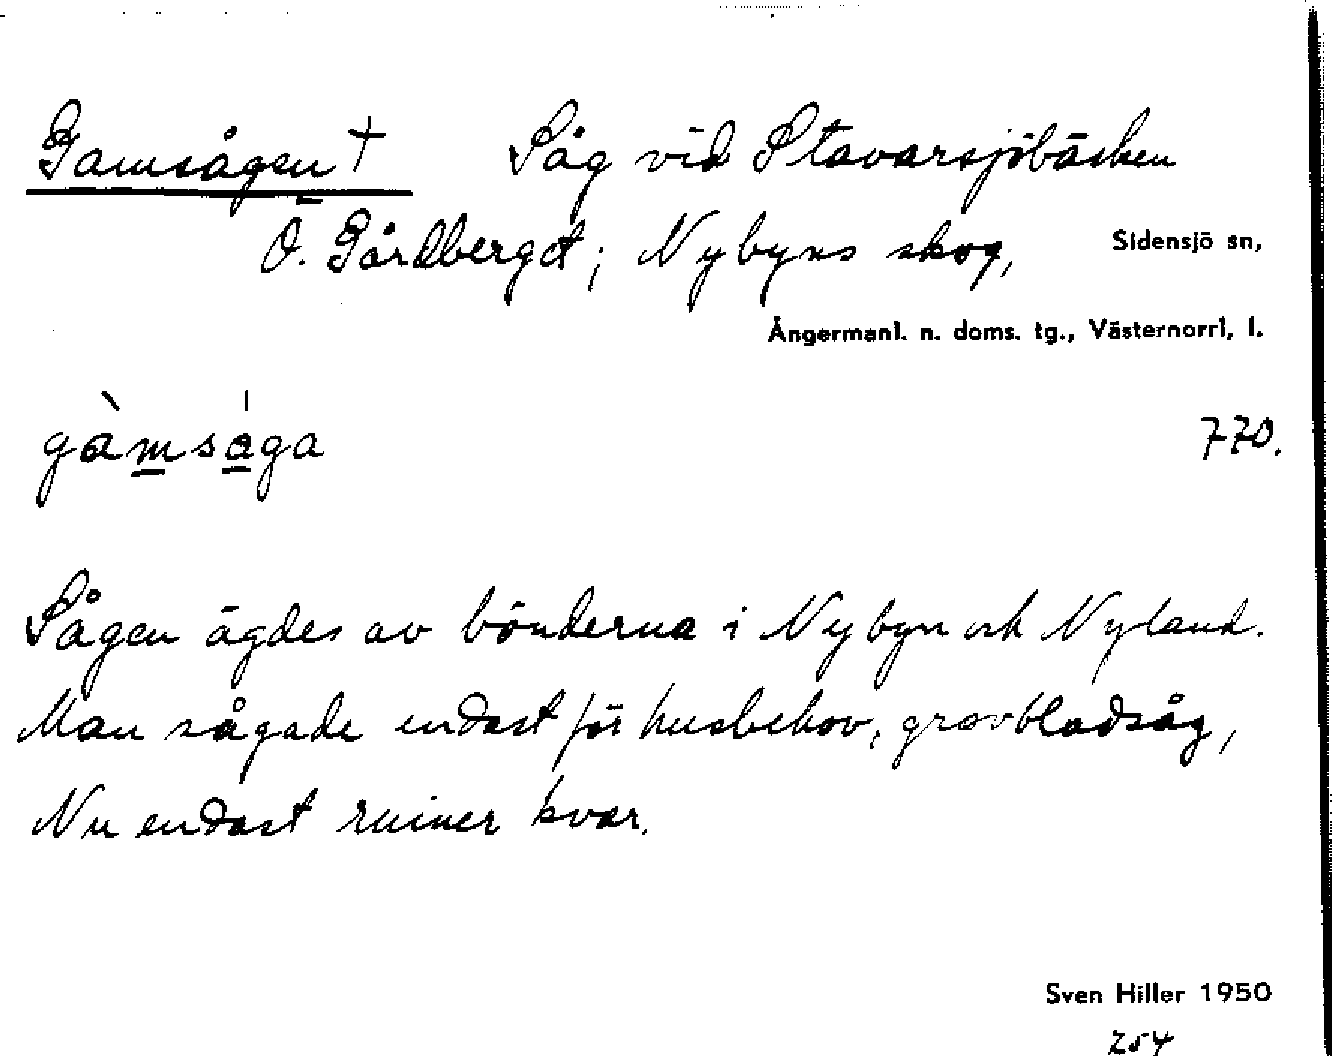 Gamsågen † Såg vid Stavarsjöbäcken
Ö. Gårdberget; Nybyns skog, Sidensjö sn,
Ångermanl. n. doms. tg., Västernorrl, l.
gàmsága 770.
Sågen ägdes av bönderna i Nybyn och Nyland.
Man sågade endast för husbehov, grovbladsåg,
Nu endast ruiner kvar.
Sven Hiller 1950
254